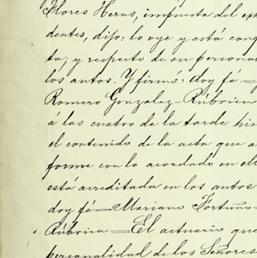 Flores Heras, impuesta del
dentes, dijo: lo oye y está
ta; y respecto de su
los autos. Y firmó: doy fé =
Romero Gonzalez = Rúbrica
á las cuatro de la tarde
el contenido de la acta que
forme con lo acordado en
está acreditada en los autos
doy fé = Mariano Fortuño =
Rúbrica = El actuario que
personalidad de los Señores